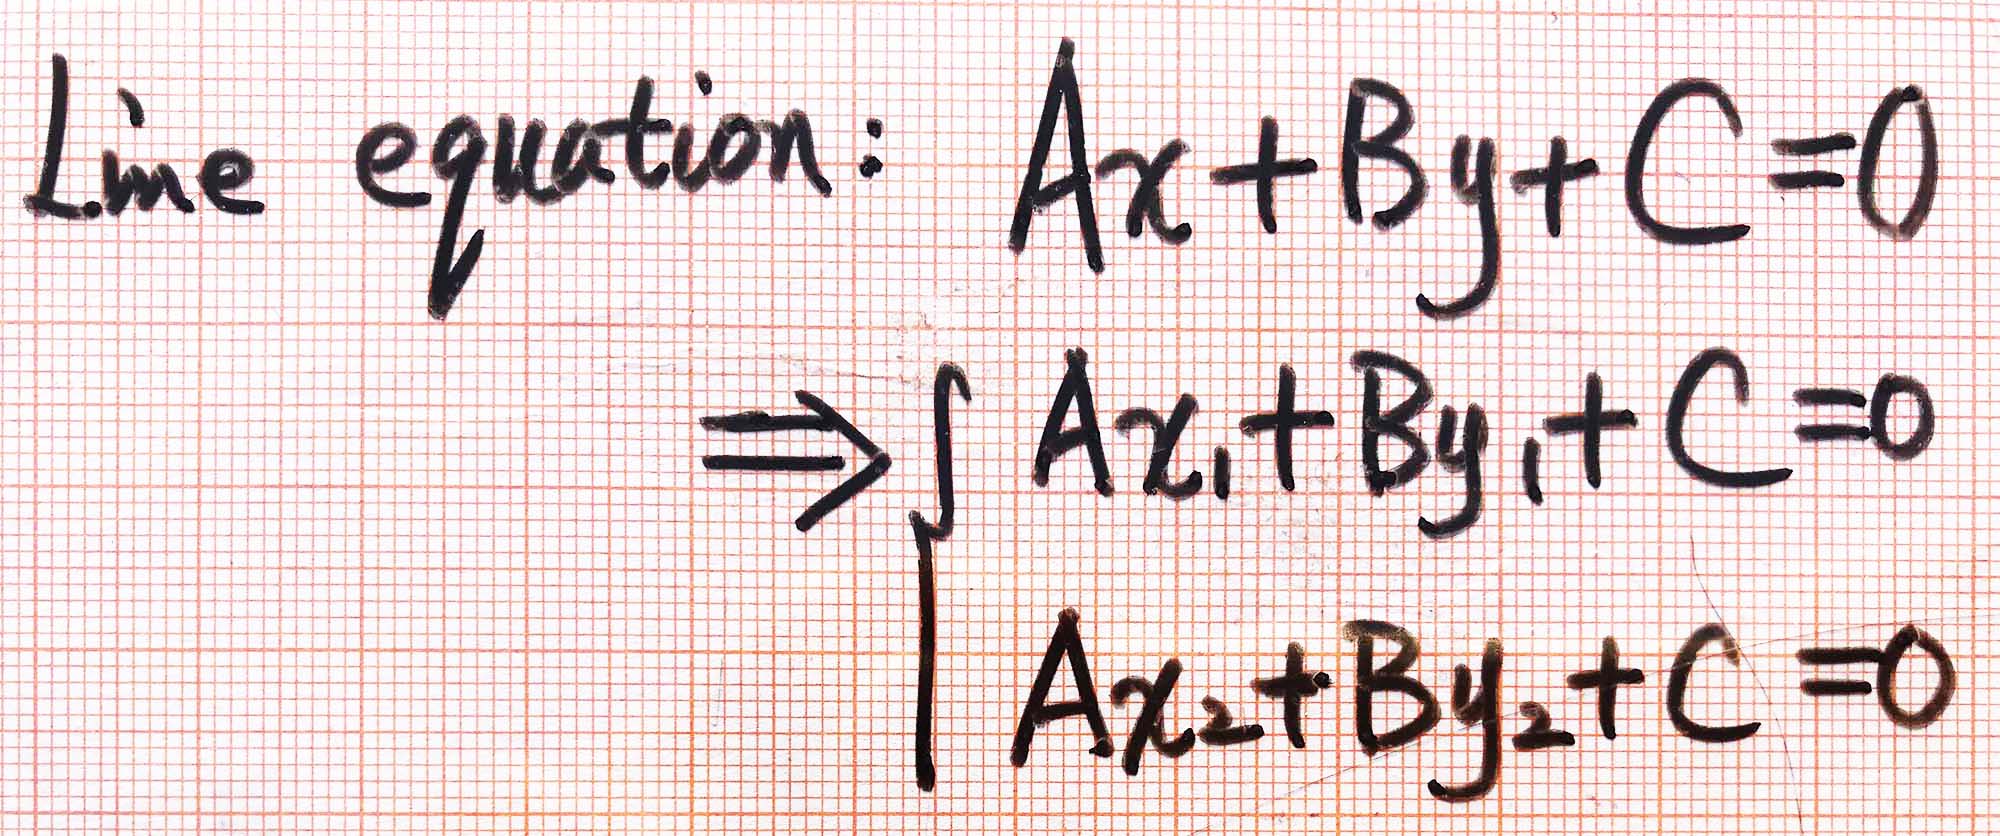 Line equation: Ax+By+C=0
⇒{ Ax₁+By₁+C=0
Ax₂+By₂+C=0